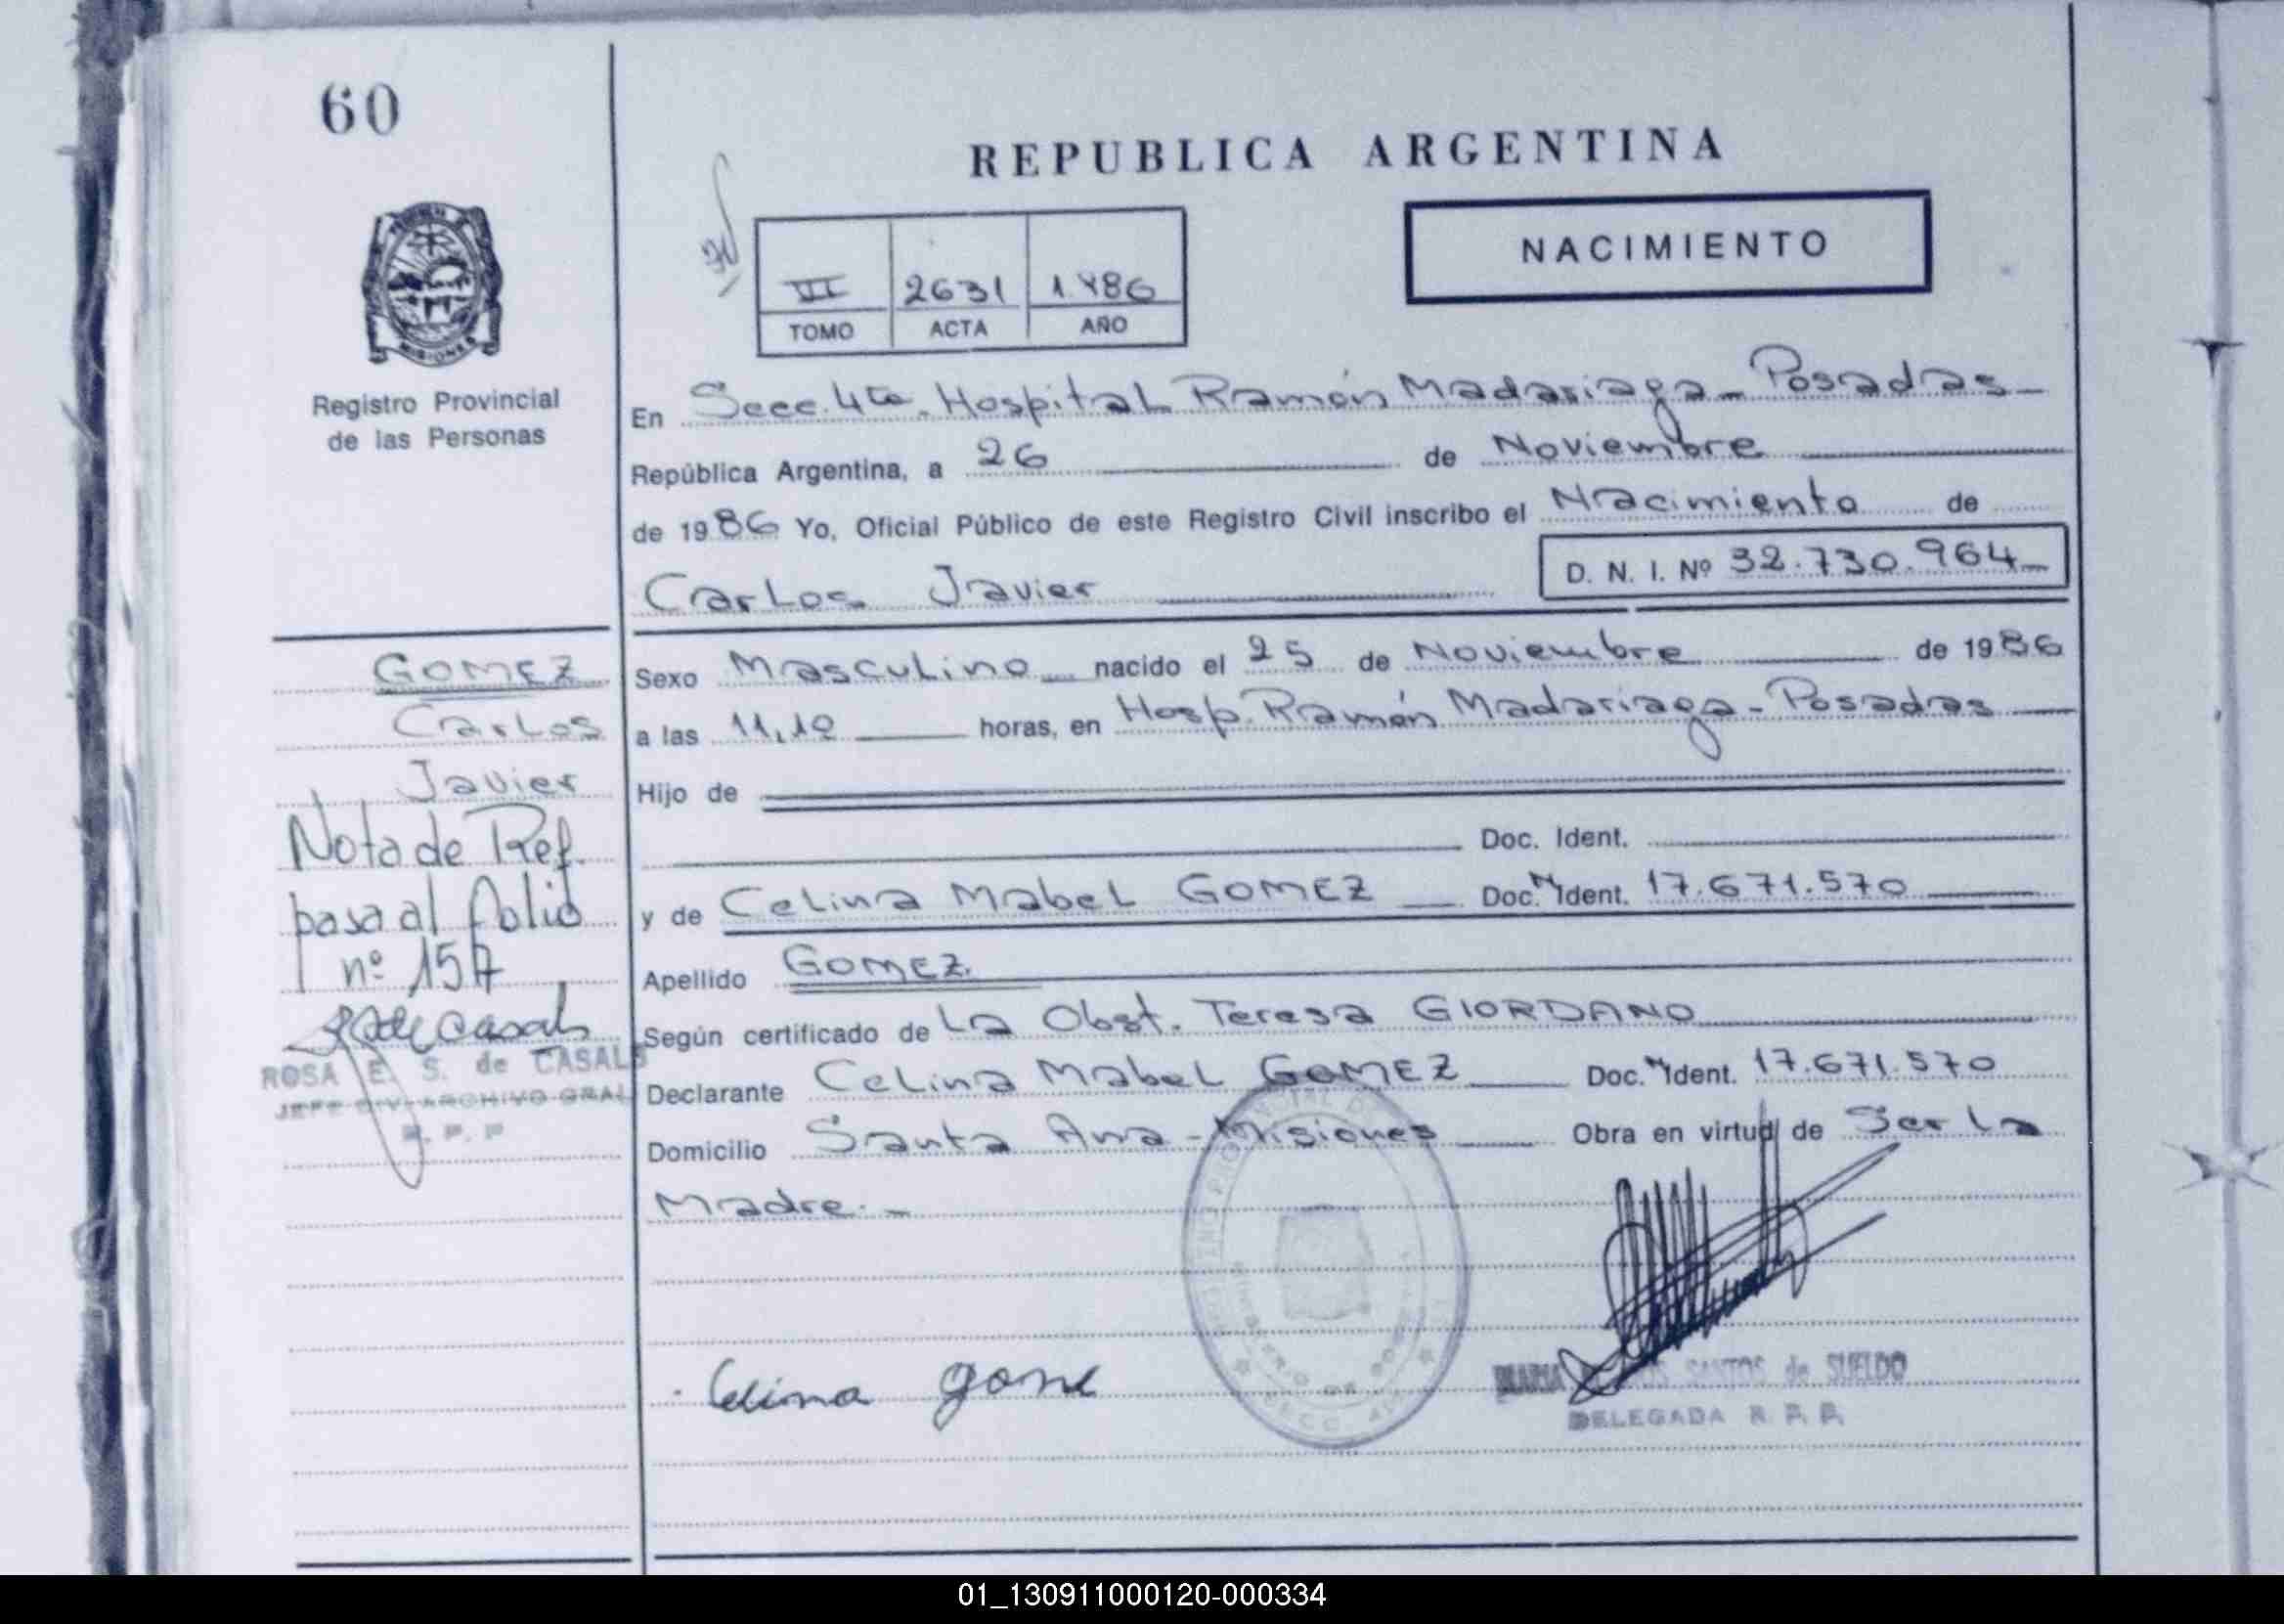 60
REPUBLICA ARGENTINA
NACIMIENTO
VII 2631 1.986
TOMO ACTA AÑO
Registro Provincial
de las Personas
En Secc. 4ta. Hospital Ramón Madariaga - Posadas -
República Argentina, a 26 de Noviembre
de 1986 Yo, Oficial Público de este Registro Civil inscribo el Nacimiento de
Carlos Javier D. N. I. Nº 32.730.964-
GOMEZ
Carlos
Javier
Nota de Ref.
pasa al folio
nº 157
ROSA E. S. de CASALS
JEFE DIV. ARCHIVO GRAL
R. P. P
Sexo Masculino nacido el 25 de Noviembre de 1986
a las 11,10 horas, en Hosp. Ramón Madariaga - Posadas
Hijo de
Doc. Ident.
y de Celina Mabel GOMEZ Doc. Ident. 17.671.570
Apellido GOMEZ.
Según certificado de La Obst. Teresa GIORDANO
Declarante Celina Mabel GOMEZ Doc. Ident. 17.671.570
Domicilio Santa Ana - Misiones Obra en virtud de Ser la
Madre. -
Celina gome
SANTOS de SUELDO
DELEGADA R. P. P.
01_130911000120-000334